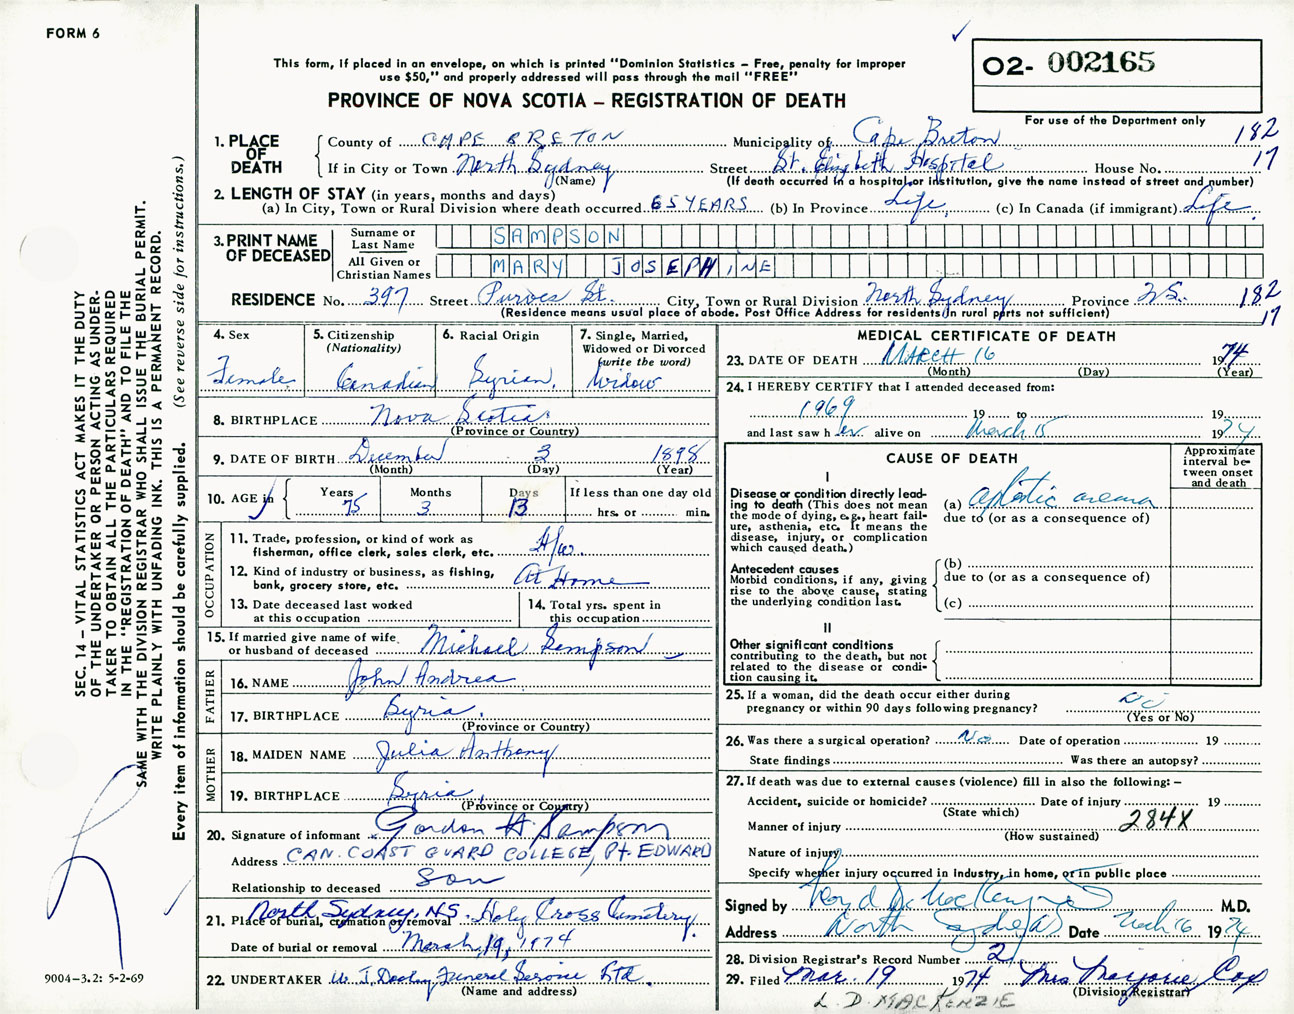 FORM 6
This form, if placed in an envelope, on which is printed "Dominion Statistics – Free, penalty for improper
use $50," and properly addressed will pass through the mail "FREE"
O2- 002165
PROVINCE OF NOVA SCOTIA – REGISTRATION OF DEATH
For use of the Department only
1. PLACE OF DEATH
County of CAPE BRETON Municipality of Cape Breton 182
If in City or Town North Sydney Street St. Elizabeth Hospital House No. 17
(Name) (If death occurred in a hospital or institution, give the name instead of street and number)
2. LENGTH OF STAY (in years, months and days)
(a) In City, Town or Rural Division where death occurred 65 YEARS (b) In Province Life, (c) In Canada (if immigrant) Life,
3. PRINT NAME OF DECEASED
Surname or Last Name SAMPSON
All Given or Christian Names MARY JOSEPHINE
RESIDENCE No. 397 Street Purves St. City, Town or Rural Division North Sydney Province N.S. 182
(Residence means usual place of abode. Post Office Address for residents in rural parts not sufficient) 17
4. Sex
Female
5. Citizenship
(Nationality)
Canadian
6. Racial Origin
Syrian.
7. Single, Married,
Widowed or Divorced
(write the word)
Widow
8. BIRTHPLACE Nova Scotia
(Province or Country)
9. DATE OF BIRTH December 3 1898
(Month) (Day) (Year)
10. AGE in
Years 75
Months 3
Days 13
If less than one day old
hrs. or min.
OCCUPATION
11. Trade, profession, or kind of work as
fisherman, office clerk, sales clerk, etc. H/w.
12. Kind of industry or business, as fishing,
bank, grocery store, etc. At Home
13. Date deceased last worked
at this occupation
14. Total yrs. spent in
this occupation
15. If married give name of wife
or husband of deceased Michael Sampson
FATHER
16. NAME John Andrea
17. BIRTHPLACE Syria.
(Province or Country)
MOTHER
18. MAIDEN NAME Julia Anthony
19. BIRTHPLACE Syria.
(Province or Country)
20. Signature of informant Gordon H Sampson
Address CAN. COAST GUARD COLLEGE, Pt. EDWARD
Relationship to deceased Son
21. Place of burial, cremation or removal North Sydney, NS. Holy Cross Cemetery.
Date of burial or removal March 19, 1974
22. UNDERTAKER W. J. Dooley Funeral Service Ltd.
(Name and address)
MEDICAL CERTIFICATE OF DEATH
23. DATE OF DEATH MARCH 16 1974
(Month) (Day) (Year)
24. I HEREBY CERTIFY that I attended deceased from:
1969 19 to 19
and last saw her alive on March 15 1974
CAUSE OF DEATH
Approximate
interval be-
tween onset
and death
I
Disease or condition directly lead-
ing to death (This does not mean
the mode of dying, e.g., heart fail-
ure, asthenia, etc. It means the
disease, injury, or complication
which caused death.)
(a) aplastic anemia
due to (or as a consequence of)
Antecedent causes
Morbid conditions, if any, giving
rise to the above cause, stating
the underlying condition last.
(b)
due to (or as a consequence of)
(c)
II
Other significant conditions
contributing to the death, but not
related to the disease or condi-
tion causing it.
25. If a woman, did the death occur either during
pregnancy or within 90 days following pregnancy? No
(Yes or No)
26. Was there a surgical operation? No Date of operation 19
State findings Was there an autopsy?
27. If death was due to external causes (violence) fill in also the following: –
Accident, suicide or homicide? Date of injury 19
(State which)
Manner of injury 284X
(How sustained)
Nature of injury
Specify whether injury occurred in industry, in home, or in public place
Signed by Lloyd D. MacKenzie M.D.
Address North Sydney Date March 16 1974
28. Division Registrar's Record Number 21
29. Filed Mar. 19 1974 Mrs Marjorie Cox
(Division Registrar)
L. D. MACKENZIE
SEC. 14 – VITAL STATISTICS ACT MAKES IT THE DUTY
OF THE UNDERTAKER OR PERSON ACTING AS UNDER-
TAKER TO OBTAIN ALL THE PARTICULARS REQUIRED
IN THE "REGISTRATION OF DEATH" AND TO FILE THE
SAME WITH THE DIVISION REGISTRAR WHO SHALL ISSUE THE BURIAL PERMIT.
WRITE PLAINLY WITH UNFADING INK. THIS IS A PERMANENT RECORD.
Every item of information should be carefully supplied. (See reverse side for instructions.)
9004–3.2: 5-2-69